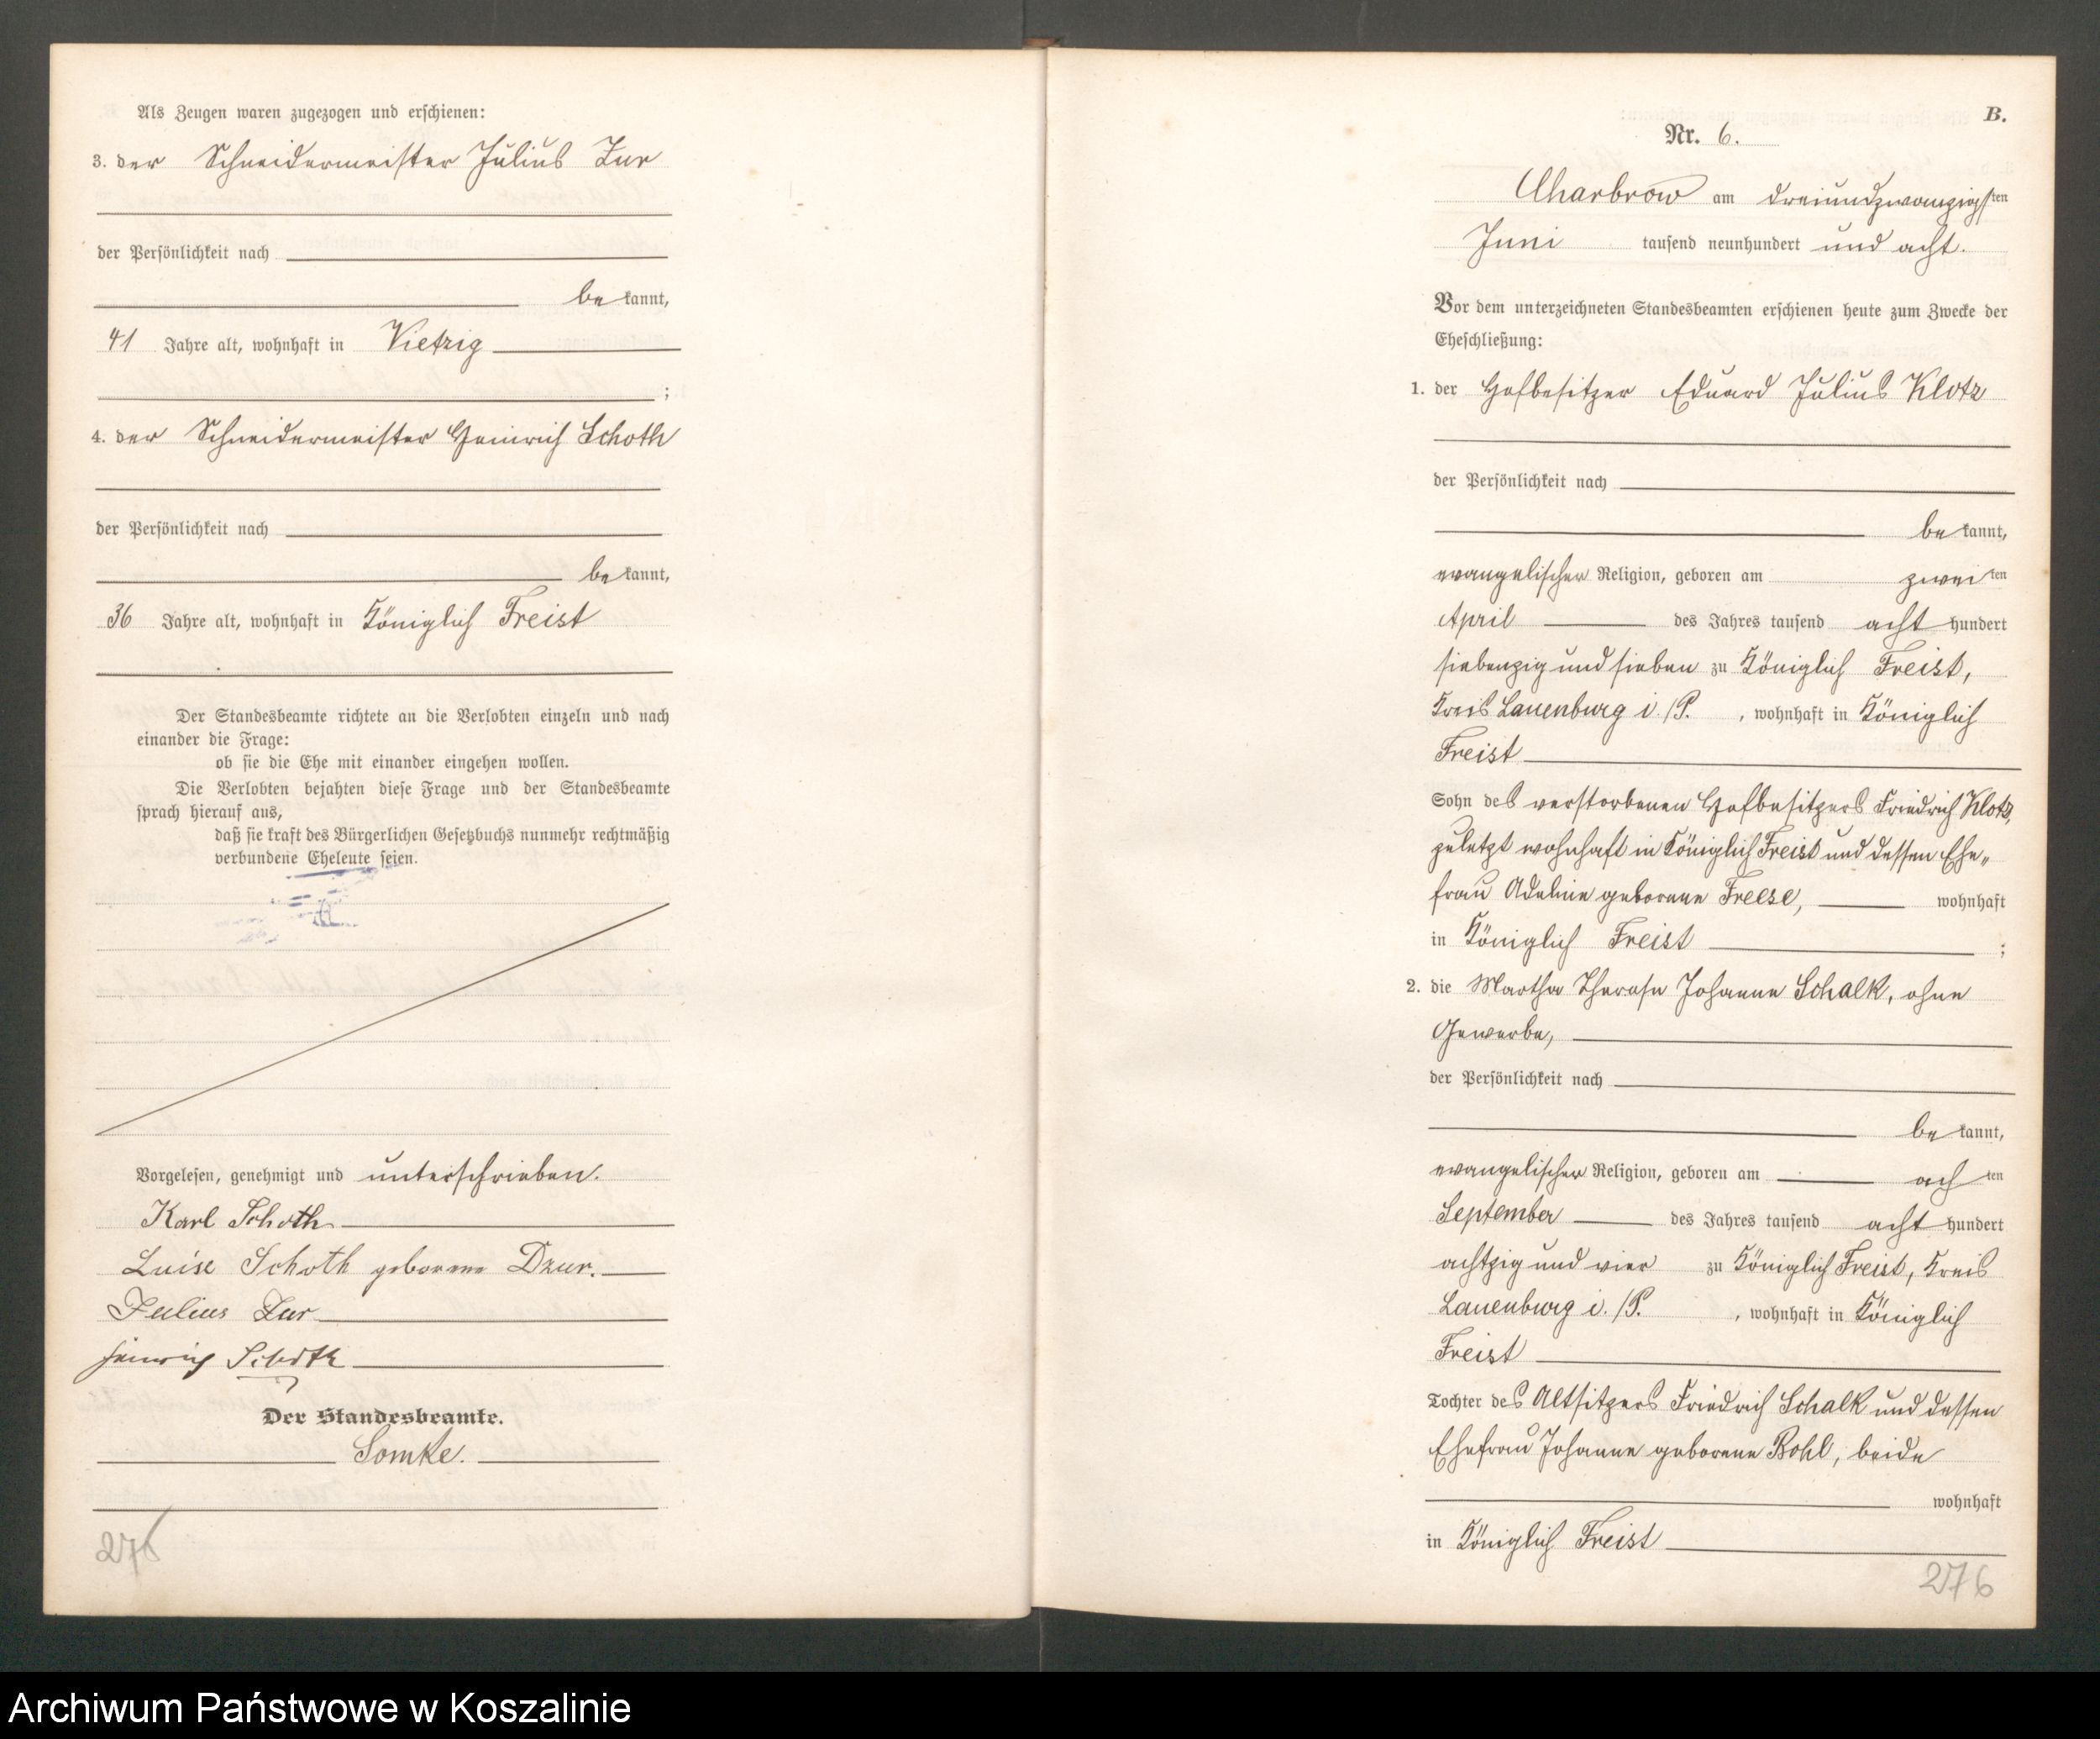 Als Zeugen waren zugezogen und erschienen:
3. der Schneidermeister Julius Zur
der Persönlichkeit nach
be kannt,
41 Jahre alt, wohnhaft in Vietzig
;
4. der Schneidermeister Heinrich Schoth
der Persönlichkeit nach
be kannt,
36 Jahre alt, wohnhaft in Königlich Freist
Der Standesbeamte richtete an die Verlobten einzeln und nach
einander die Frage:
ob sie die Ehe mit einander eingehen wollen.
Die Verlobten bejahten diese Frage und der Standesbeamte
sprach hierauf aus,
daß sie kraft des Bürgerlichen Gesetzbuchs nunmehr rechtmäßig
verbundene Eheleute seien.
Vorgelesen, genehmigt und unterschrieben.
Karl Schoth
Luise Schoth geborene Dzur.
Julius Zur
Heinrich Schoth
Der Standesbeamte.
Somke.
276
B.
Nr. 6.
Charbrow am dreiundzwanzigsten
Juni tausend neunhundert und acht.
Vor dem unterzeichneten Standesbeamten erschienen heute zum Zwecke der
Eheschließung:
1. der Hofbesitzer Eduard Julius Klotz
der Persönlichkeit nach
be kannt,
evangelischer Religion, geboren am zwei ten
April des Jahres tausend acht hundert
siebenzig und sieben zu Königlich Freist,
Kreis Lauenburg i./P. , wohnhaft in Königlich
Freist
Sohn des verstorbenen Hofbesitzers Friedrich Klotz,
zuletzt wohnhaft in Königlich Freist und dessen Ehe„
frau Adeline geborene Freese, wohnhaft
in Königlich Freist ;
2. die Martha Therese Johanne Schalk, ohne
Gewerbe,
der Persönlichkeit nach
be kannt,
evangelischer Religion, geboren am ach ten
September des Jahres tausend acht hundert
achtzig und vier zu Königlich Freist, Kreis
Lauenburg i./P. , wohnhaft in Königlich
Freist
Tochter des Altsitzers Friedrich Schalk und dessen
Ehefrau Johanne geborene Bohl, beide
wohnhaft
in Königlich Freist
276
Archiwum Państwowe w Koszalinie